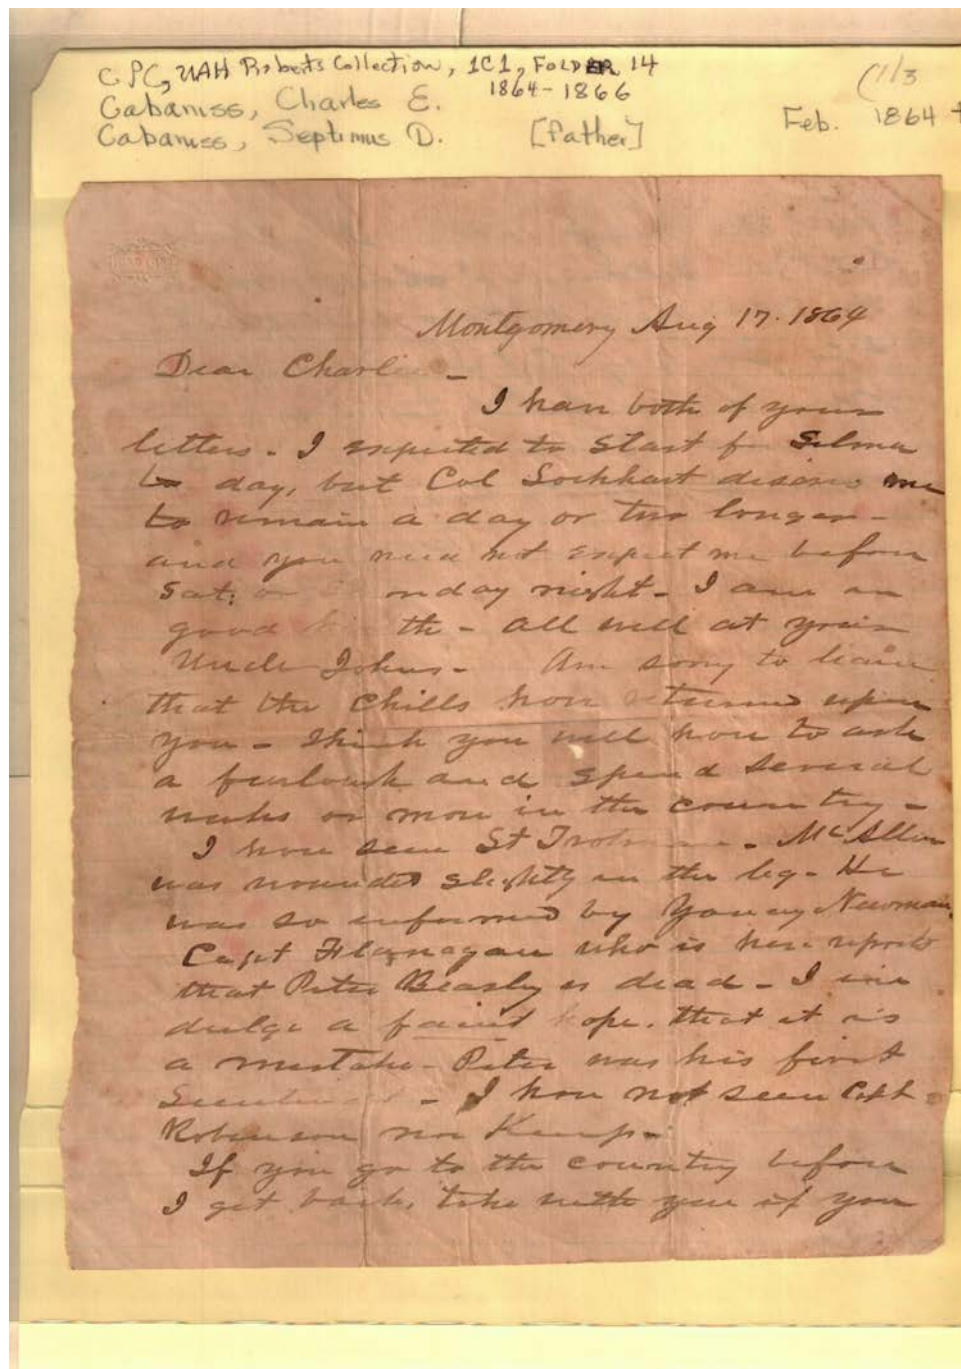 CPC, UAH Roberts Collection, 1C1, FOLDER 14
1864-1866
(1/3
Cabaniss, Charles E.
Cabaniss, Septimus D. [father]
Feb. 1864
Montgomery Aug 17. 1864
Dear Charlie -
I have both of your
letters - I expected to start for Selma
to day, but Col Lockhart desires me
to remain a day or two longer -
and you need not expect me before
Sat. or nday night - I am in
good th - all well at your
Uncle Johns - Am sorry to learn
that the chills have returned upon
you - Think you will have to ask
a furlough and spend several
weeks or more in the country -
I have seen St - McAllen
was wounded slightly in the leg - He
was so informed by Young Newman.
Capt Flanagan who is here reports
that Peter Beasley is dead - I in
dulge a faint hope. that it is
a mistake - Peter was his first
Lieutenant - I have not seen Capt
Robinson nor Kemp -
If you go to the country before
I get back, take with you if you